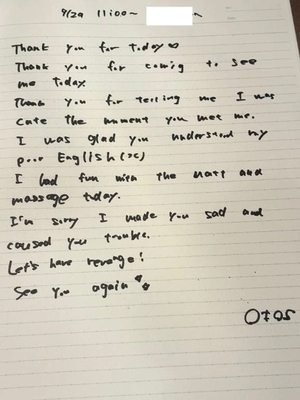 9/29 11:00~
Thank you for today♡
Thank you for coming to see
me today
Thank you for telling me I was
cute the moment you met me.
I was glad you understood my
poor English (><)
I had fun with the and
massage today.
I'm sorry I made you sad and
caused you trouble.
Let's have revenge!
See you again